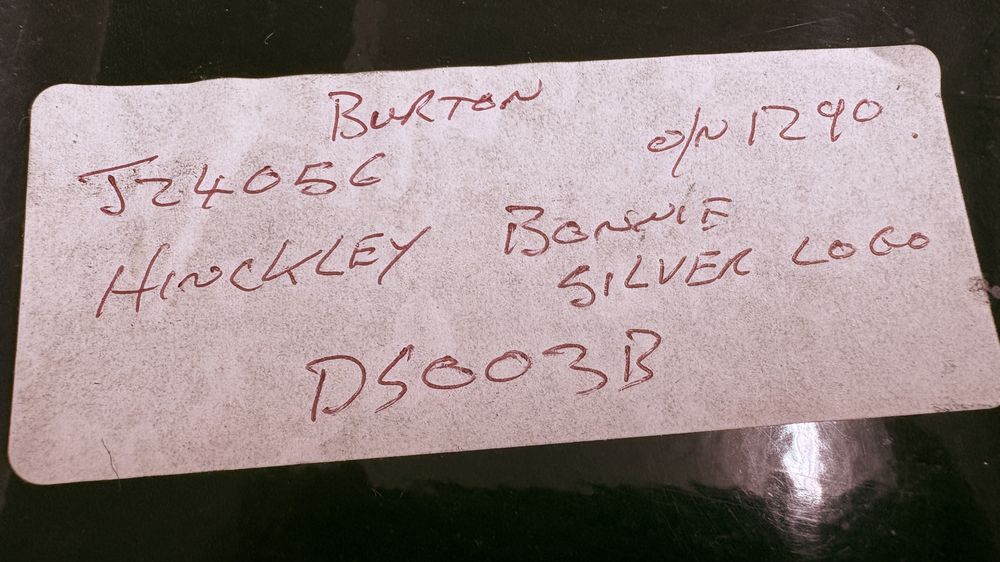 BURTON
J24056 O/N 1290
HINCKLEY BONNIE
SILVER LOGO
DS003B